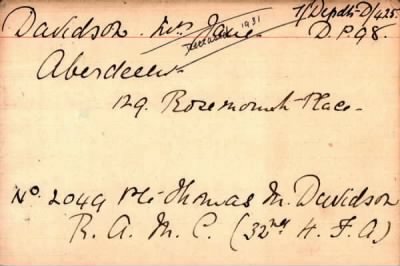 7/Depdts D/425.
Davidson. Mrs Jane. D.P.98.
Deceased 1931
Aberdeen.
129. Rosemount Place.
No. 2049 Pte Thomas M. Davidson
R. A. M. C. (32nd H. F. A)